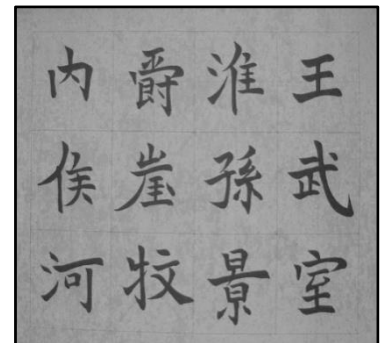 王武室
淮孫景
爵崖牧
内侯河